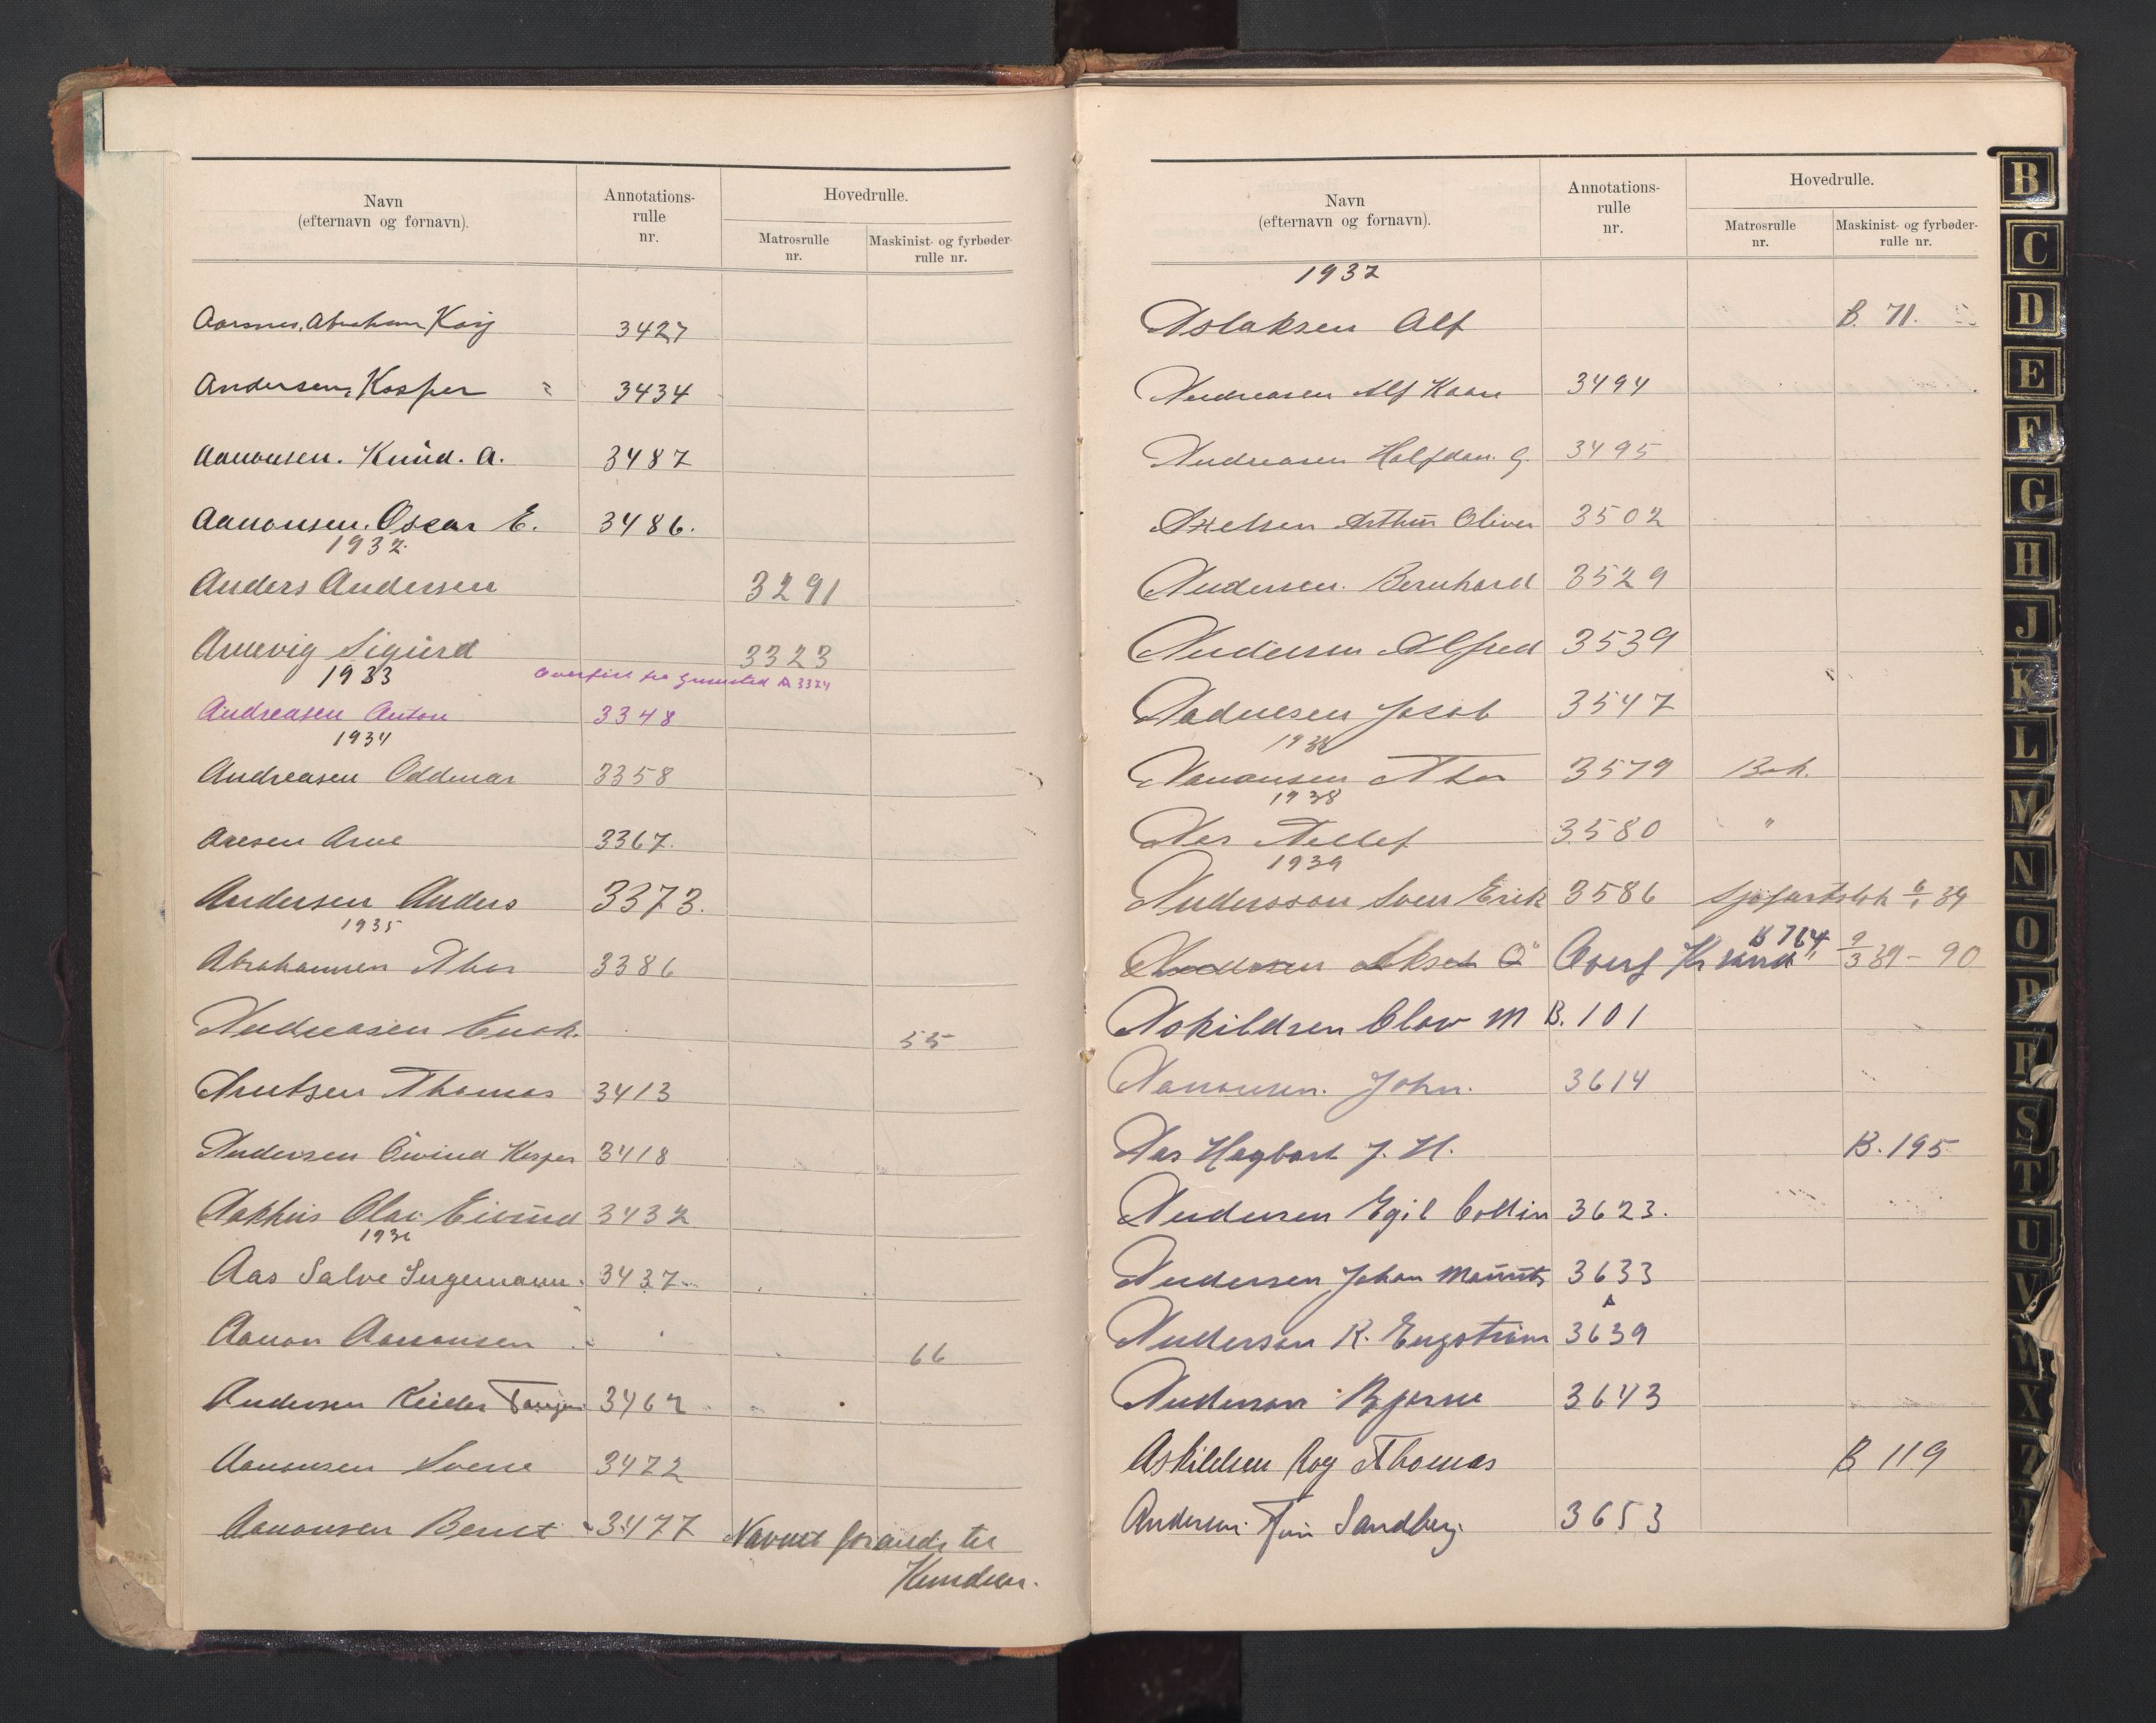 Navn
(efternavn og fornavn).
Annotations-
rulle
nr.
Hovedrulle.
Matrosrulle
nr.
Maskinist- og fyrbøder-
rulle nr.
Aarsnes, Abraham Kaij 3427
Andersen, Kasper 3434
Aanonsen. Knud. A. 3487
Aanonsen. Oscar E. 3486.
1932.
Anders Andersen 3291
Arnevig Sigurd 3323
1933
Overført fra Grimstad A 3324
Andreasen Anton 3348
1934
Andreasen Oddmar 3358
Aresen Arne 3367.
Andersen Anders 3373.
1935
Abrahamsen Thor 3386
Andreasen Enok. 55
Arntsen Thomas 3413
Andersen Øivind Kasper 3418
Aakhus Olav Eivind 3432
1936
Aas Salve Ingemann. 3437
Aanon Aanonsen 66
Andersen Reidar 3462
Aanonsen Sverre 3472
Aanonsen Bernt 3477 Navnet forandr. til
Navn
(efternavn og fornavn).
Annotations-
rulle
nr.
Hovedrulle.
Matrosrulle
nr.
Maskinist- og fyrbøder-
rulle nr.
1937
Aslaksen Alf B. 71.
Andreasen Alf Kaare 3494
Andreasen Halfdan. G. 3495
Axelsen Arthur Oliver 3502
Andersen. Bernhard 3529
Andersen Alfred 3539
Aadnesen Jacob 3547
1938
Aanonsen Thor 3579 Bek.
1938
Aas Tellef 3580 "
1939
Andersson Sven Erik 3586 39
Andersen Aksel O Overf Kr sand B 764 9/3 39 - 90
Askildsen Olav M B. 101
Aanonsen. John. 3614
Aas Hagbart J. H. B. 195
Andersen Egil Collin 3623.
Andersen Johan Mauritz 3633
A
Anderson R. Engström 3639
Anderson Bjarne 3643
Askildsen Roy Thomas B 119
Andersen. Sandberg. 3653
B
C
D
E
F
G
H
J
K
L
M
N
O
P
R
S
T
U
V
W
X